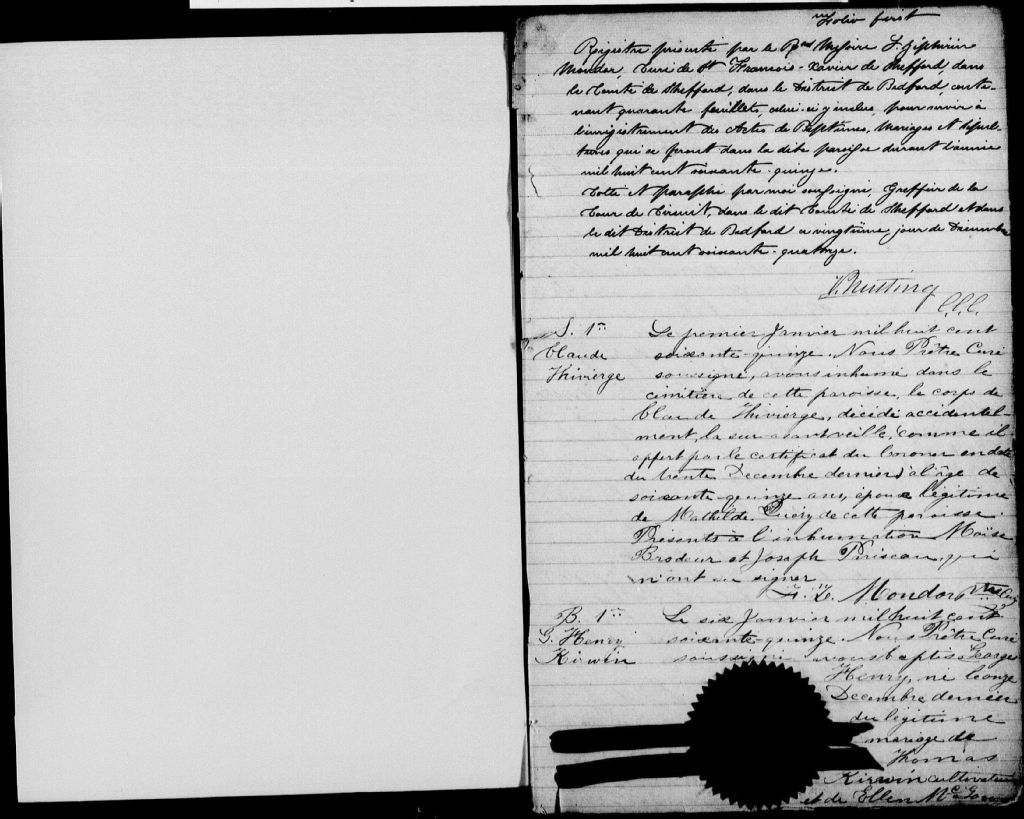 Folio first
Registre présenté par le Rvd Messire F. Zéphirin
Mondor, Curé de St François-Xavier de Shefford, dans
le Comté de Shefford, dans le District de Bedford, conte-
nant quarante feuillets, celui-ci y inclus, pour servir à
l'enregistrement des Actes de Baptêmes, Mariages et Sépul-
tures qui se feront dans la dite paroisse durant l'année
mil huit cent soixante-quinze.
Cotté et paraphé par moi soussigné, Greffier de la
Cour de Circuit, dans le dit Comté de Shefford et dans
le dit District de Bedford ce vingtième jour de Décembre
mil huit cent soixante-quatorze.
Nutting
C.C.C.
S. 1er
Claude
Thivierge
Le premier Janvier mil huit cent
soixante-quinze, Nous Prêtre Curé
soussigné, avons inhumé dans le
cimitière de cette paroisse, le corps de
Claude Thivierge, décédé accidentel-
ment, la sur-avant veille, (comme il
appert par le certificat du Coroner en date
du trente Decembre dernier) à l'âge de
soixante-quinze ans, époux légitime
de Mathilde de cette paroisse.
Présents à l'inhumation Moïse
Brodeur et Joseph Pariseau, qui
n'ont su signer
F. Z. Mondor Ptre Curé
B. 1er
G. Henry
Kirwin
Le six Janvier mil huit cent
soixante-quinze, Nous Prêtre Curé
soussigné avons baptisé George
Henry, né le onze
Decembre dernier
du légitime
mariage de
Thomas
Kirwin cultivateur
et de Ellen